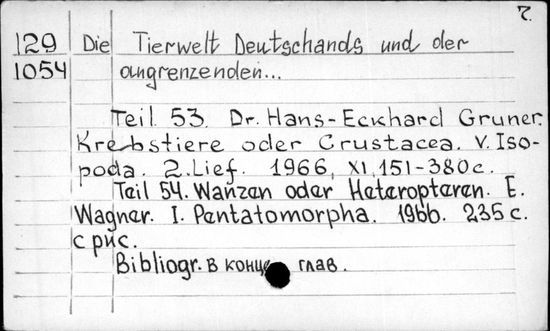 7.
129 Die Tierwelt Deutschands und der
1054 angrenzenden...
Teil 53. Dr. Hans-Eckhard Gruner.
Krebstiere oder Crustacea. V. Iso-
poda. 2. Lief. 1966, XI, 151-380 с.
Teil 54. Wanzen oder Heteropteren. E.
Wagner. I. Pentatomorpha. 1966. 235 с.
с рис.
Bibliogr. в конце глав.